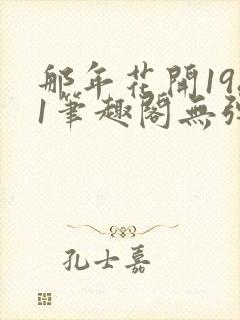 那年花開19
1筆趣閣無
孔士嘉